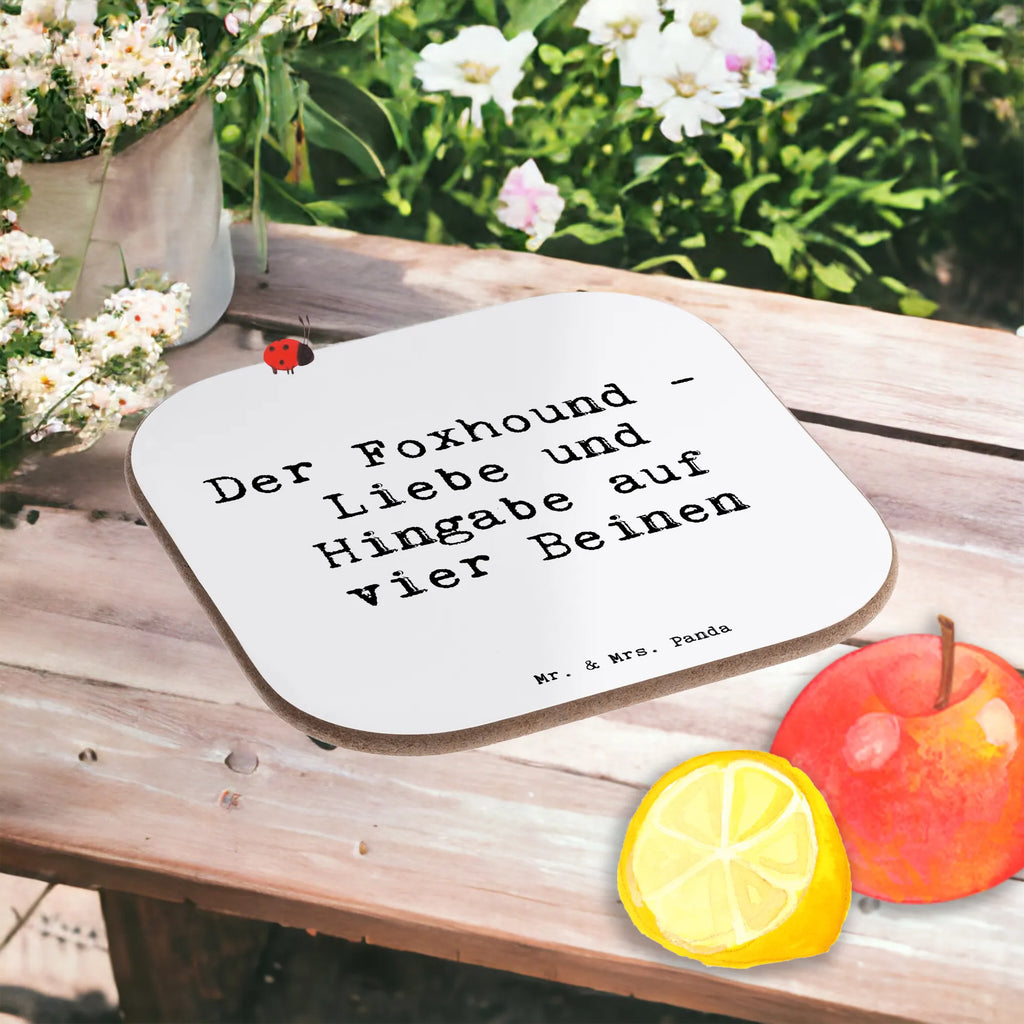 Der Foxhound -
Liebe und
Hingabe auf
vier Beinen
Mr. & Mrs. Panda